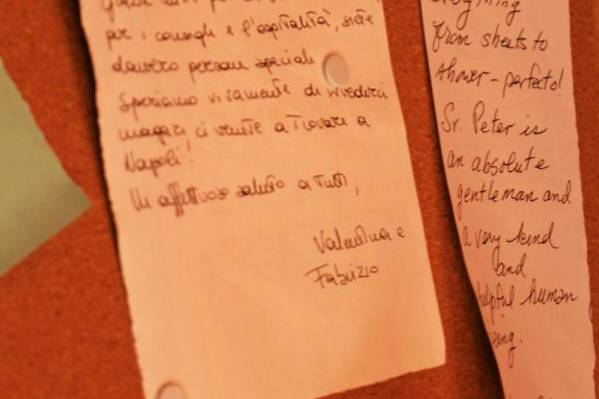 per i consigli e l'ospitalità, siete
davvero persone speciali.
Speriamo vivamente di rivederci
magari ci venite a trovare a
Napoli!
Un affettuoso saluto a tutti,
Valentina e
Fabrizio
from sheets to
shower - perfecto!
Sr. Peter is
an absolute
gentleman and
a very kind
and
helpful human